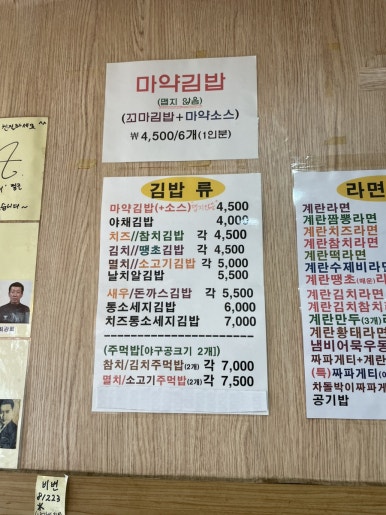 마약김밥
(맵지 않음)
(꼬마김밥+마약소스)
₩ 4,500/6개(1인분)
김밥 류
마약김밥(+소스) 4,500
야채김밥 4,000
치즈//참치김밥 각 4,500
김치//땡초김밥 각 4,500
멸치//소고기김밥 각 5,000
날치알김밥 5,500
새우/돈까스김밥 각 5,500
통소세지김밥 6,000
치즈통소세지김밥 7,000
(주먹밥[야구공크기 2개])
참치/김치주먹밥(2개) 각 7,000
멸치/소고기주먹밥(2개) 각 7,500
라면
계란라면
계란짬뽕라면
계란치즈라면
계란참치라면
계란떡라면
계란수제비라면
계란땡초(매운)라면
계란김치라면
계란김치참치
계란만두(3개)
계란황태라면
냄비어묵우동
짜파게티+계란
(특)짜파게티(
차돌박이짜파게
공기밥
비번
81223